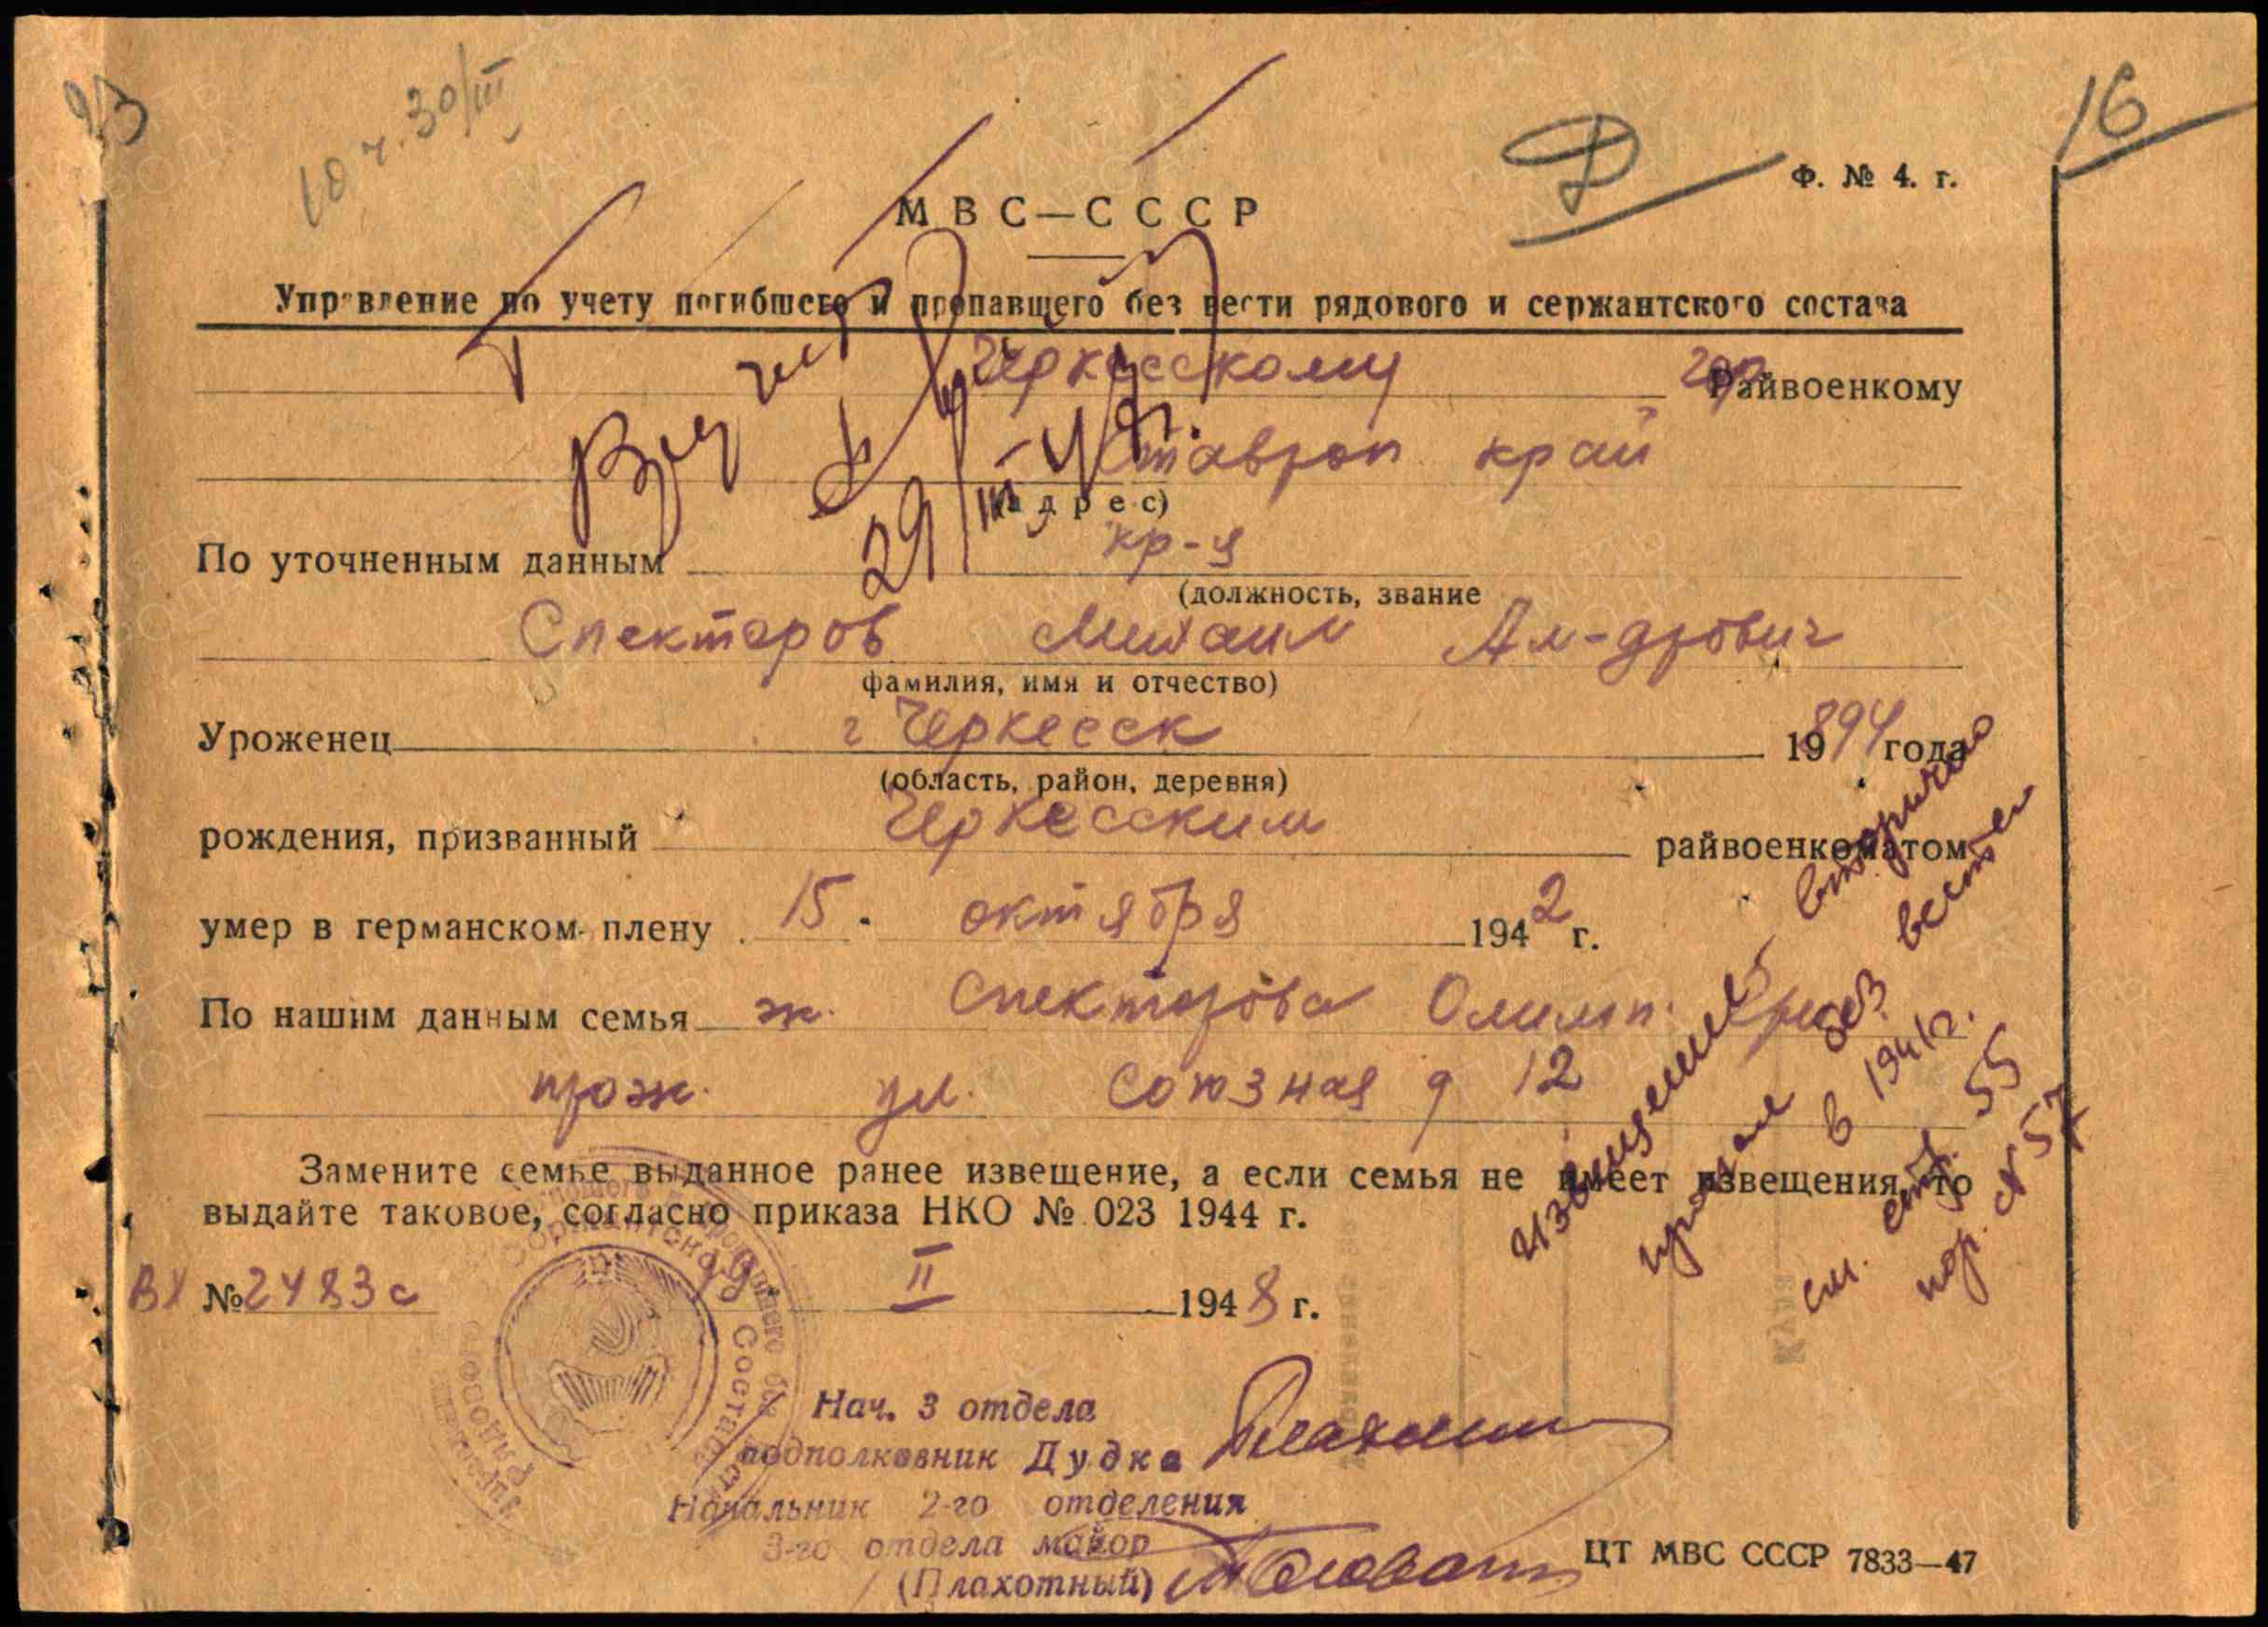 23
10 ч. 30/III
16
Ф. № 4. г.
МВС—СССР
Управление по учету погибшего и пропавшего без вести рядового и сержантского состава
Черкесскому гор Райвоенкому
Ставроп край
(адрес)
29/III-48
По уточненным данным кр-ц
(должность, звание
Спекторов Михаил Ал-дрович
фамилия, имя и отчество)
Уроженец г Черкесск 1894 года
(область, район, деревня)
рождения, призванный Черкесским райвоенкоматом
умер в германском плену 15. октября 1942 г.
По нашим данным семья ж. Спекторова Олимп.
прож. ул. Союзная д 12
Извещение вторично
пропал без вести
в 1941г.
см. стр. 55
пор. № 57
Замените семье выданное ранее извещение, а если семья не имеет извещения, то
выдайте таковое, согласно приказа НКО № 023 1944 г.
Вх №2483с II 1948 г.
Нач. 3 отдела
подполковник Дудка
Начальник 2-го отделения
3-го отдела майор
(Плахотный)
ЦТ МВС СССР 7833—47